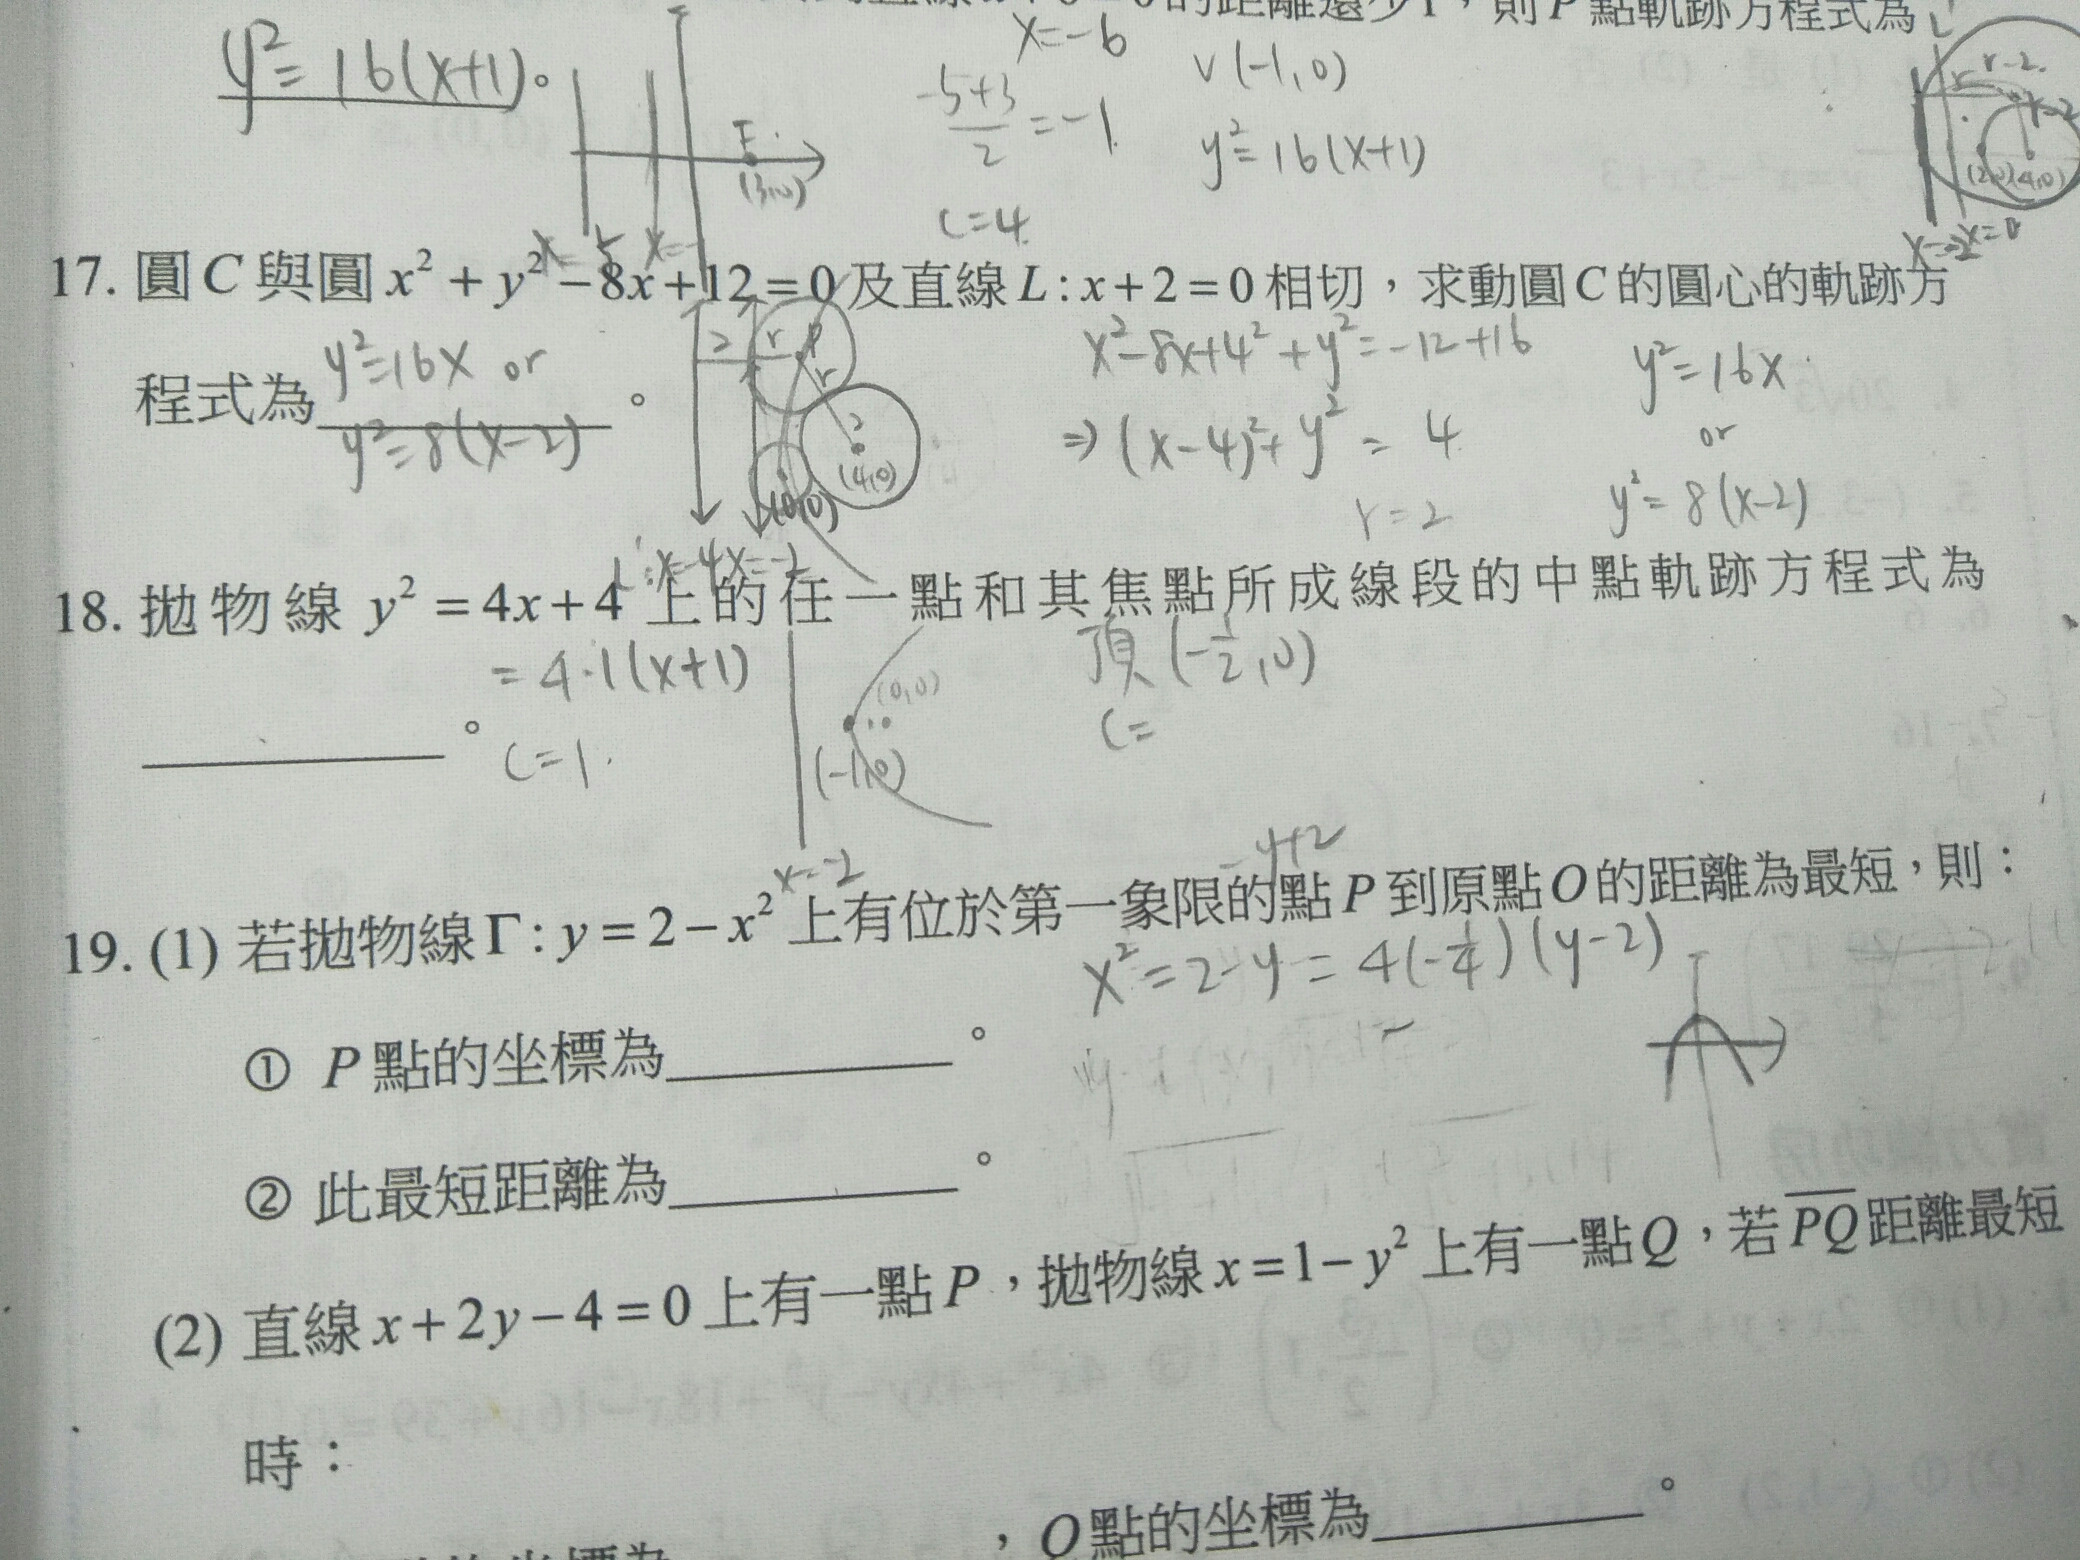 的距離還少1,則P點軌跡方程式為
y²=16(x+1)。
x=-6
(-5+3)/2=-1
c=4
V(-1,0)
y²=16(x+1)
F
(3,0)
r-2
(2,0)(4,0)
x=-2 x=0
17. 圓C與圓x²+y²-8x+12=0及直線L:x+2=0相切,求動圓C的圓心的軌跡方
程式為 y²=16x or y²=8(x-2)。
2 r P r 2
(0,0) (4,0)
L':x=-4 x=-2
x²-8x+4²+y²=-12+16
⇒(x-4)²+y²=4
r=2
y²=16x
or
y²=8(x-2)
18. 拋物線y²=4x+4上的任一點和其焦點所成線段的中點軌跡方程式為
=4·1(x+1)
。
c=1.
(0,0)
(-1,0)
x=-2
頂(-1/2,0)
c=
19. (1) 若拋物線Γ:y=2-x²上有位於第一象限的點P到原點O的距離為最短,則:
-y+2
x²=2-y=4(-1/4)(y-2)
① P點的坐標為。
② 此最短距離為。
(2) 直線x+2y-4=0上有一點P,拋物線x=1-y²上有一點Q,若PQ距離最短
時:
,Q點的坐標為。